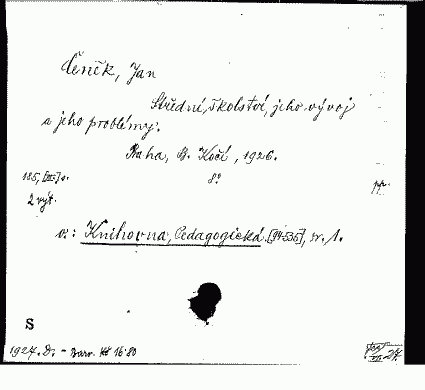 Čeněk, Jan
Střední školství, jeho vývoj
a jeho problémy.
Praha, B. Kočí, 1926.
185, [III] s. 8°
2 výt.
v.: Knihovna, Pedagogická [94-535], sv. 1.
S
1927. D. - Darov. Kč 16·80